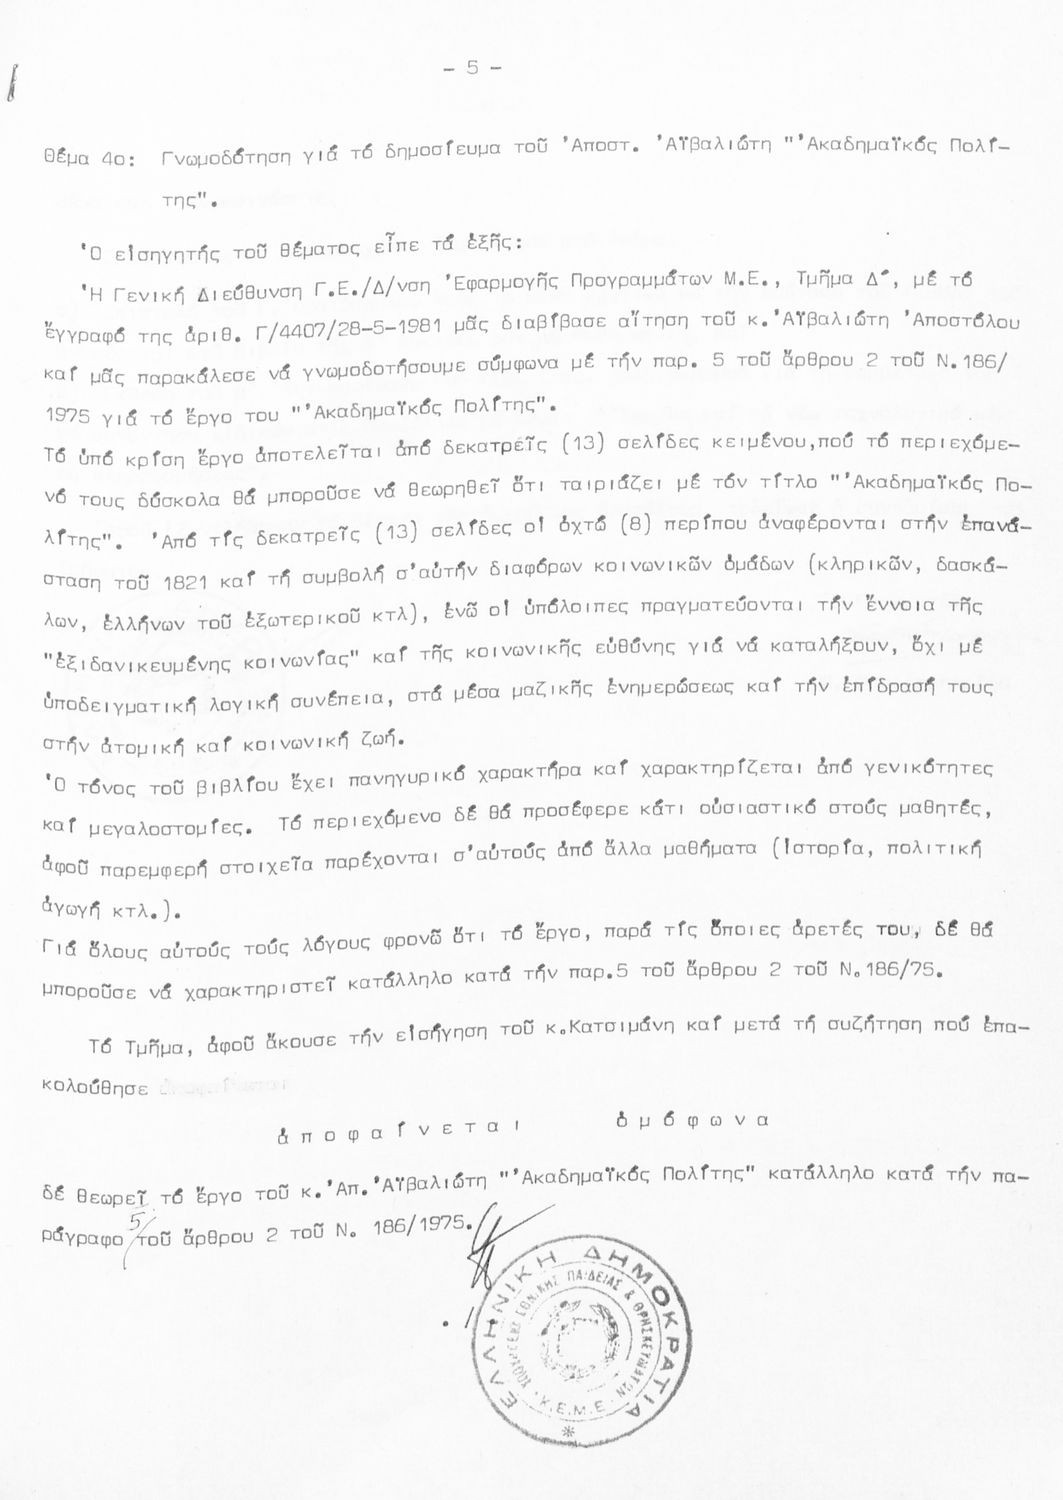 - 5 -
Θέμα 4ο: Γνωμοδότηση γιά τό δημοσίευμα τοῦ Ἀποστ. Ἀϊβαλιώτη "Ἀκαδημαϊκός Πολί-
της".
Ὁ εἰσηγητής τοῦ θέματος εἶπε τά ἑξῆς:
Ἡ Γενική Διεύθυνση Γ.Ε./Δ/νση Ἐφαρμογῆς Προγραμμάτων Μ.Ε., Τμῆμα Δ´, μέ τό
ἔγγραφό της ἀριθ. Γ/4407/28-5-1981 μᾶς διαβίβασε αἴτηση τοῦ κ. Ἀϊβαλιώτη Ἀποστόλου
καί μᾶς παρακάλεσε νά γνωμοδοτήσουμε σύμφωνα μέ τήν παρ. 5 τοῦ ἄρθρου 2 τοῦ Ν.186/
1975 γιά τό ἔργο του "Ἀκαδημαϊκός Πολίτης".
Τό ὑπό κρίση ἔργο ἀποτελεῖται ἀπό δεκατρεῖς (13) σελίδες κειμένου,πού τό περιεχόμε-
νό τους δύσκολα θά μποροῦσε νά θεωρηθεῖ ὅτι ταιριάζει μέ τόν τίτλο "Ἀκαδημαϊκός Πο-
λίτης". Ἀπό τίς δεκατρεῖς (13) σελίδες οἱ ὀχτώ (8) περίπου ἀναφέρονται στήν ἐπανά-
σταση τοῦ 1821 καί τή συμβολή σ'αὐτήν διαφόρων κοινωνικῶν ὁμάδων (κληρικῶν, δασκά-
λων, ἑλλήνων τοῦ ἐξωτερικοῦ κτλ), ἐνῶ οἱ ὑπόλοιπες πραγματεύονται τήν ἔννοια τῆς
"ἐξιδανικευμένης κοινωνίας" καί τῆς κοινωνικῆς εὐθύνης γιά νά καταλήξουν, ὄχι μέ
ὑποδειγματική λογική συνέπεια, στά μέσα μαζικῆς ἐνημερώσεως καί τήν ἐπίδρασή τους
στήν ἀτομική καί κοινωνική ζωή.
Ὁ τόνος τοῦ βιβλίου ἔχει πανηγυρικό χαρακτήρα καί χαρακτηρίζεται ἀπό γενικότητες
καί μεγαλοστομίες. Τό περιεχόμενο δέ θά προσέφερε κάτι οὐσιαστικό στούς μαθητές,
ἀφοῦ παρεμφερή στοιχεῖα παρέχονται σ'αὐτούς ἀπό ἄλλα μαθήματα (ἱστορία, πολιτική
ἀγωγή κτλ.).
Γιά ὅλους αὐτούς τούς λόγους φρονῶ ὅτι τό ἔργο, παρά τίς ὅποιες ἀρετές του, δέ θά
μποροῦσε νά χαρακτηριστεῖ κατάλληλο κατά τήν παρ.5 τοῦ ἄρθρου 2 τοῦ Ν.186/75.
Τό Τμῆμα, ἀφοῦ ἄκουσε τήν εἰσήγηση τοῦ κ.Κατσιμάνη καί μετά τή συζήτηση πού ἐπα-
κολούθησε
ἀ π ο φ α ί ν ε τ α ι ὁ μ ό φ ω ν α
δέ θεωρεῖ τό ἔργο τοῦ κ. Ἀπ. Ἀϊβαλιώτη "Ἀκαδημαϊκός Πολίτης" κατάλληλο κατά τήν πα-
ράγραφο 5/ τοῦ ἄρθρου 2 τοῦ Ν. 186/1975.
ΕΛΛΗΝΙΚΗ ΔΗΜΟΚΡΑΤΙΑ
ΥΠΟΥΡΓΕΙΟ ΕΘΝΙΚΗΣ ΠΑΙΔΕΙΑΣ & ΘΡΗΣΚΕΥΜΑΤΩΝ
Κ.Ε.Μ.Ε.